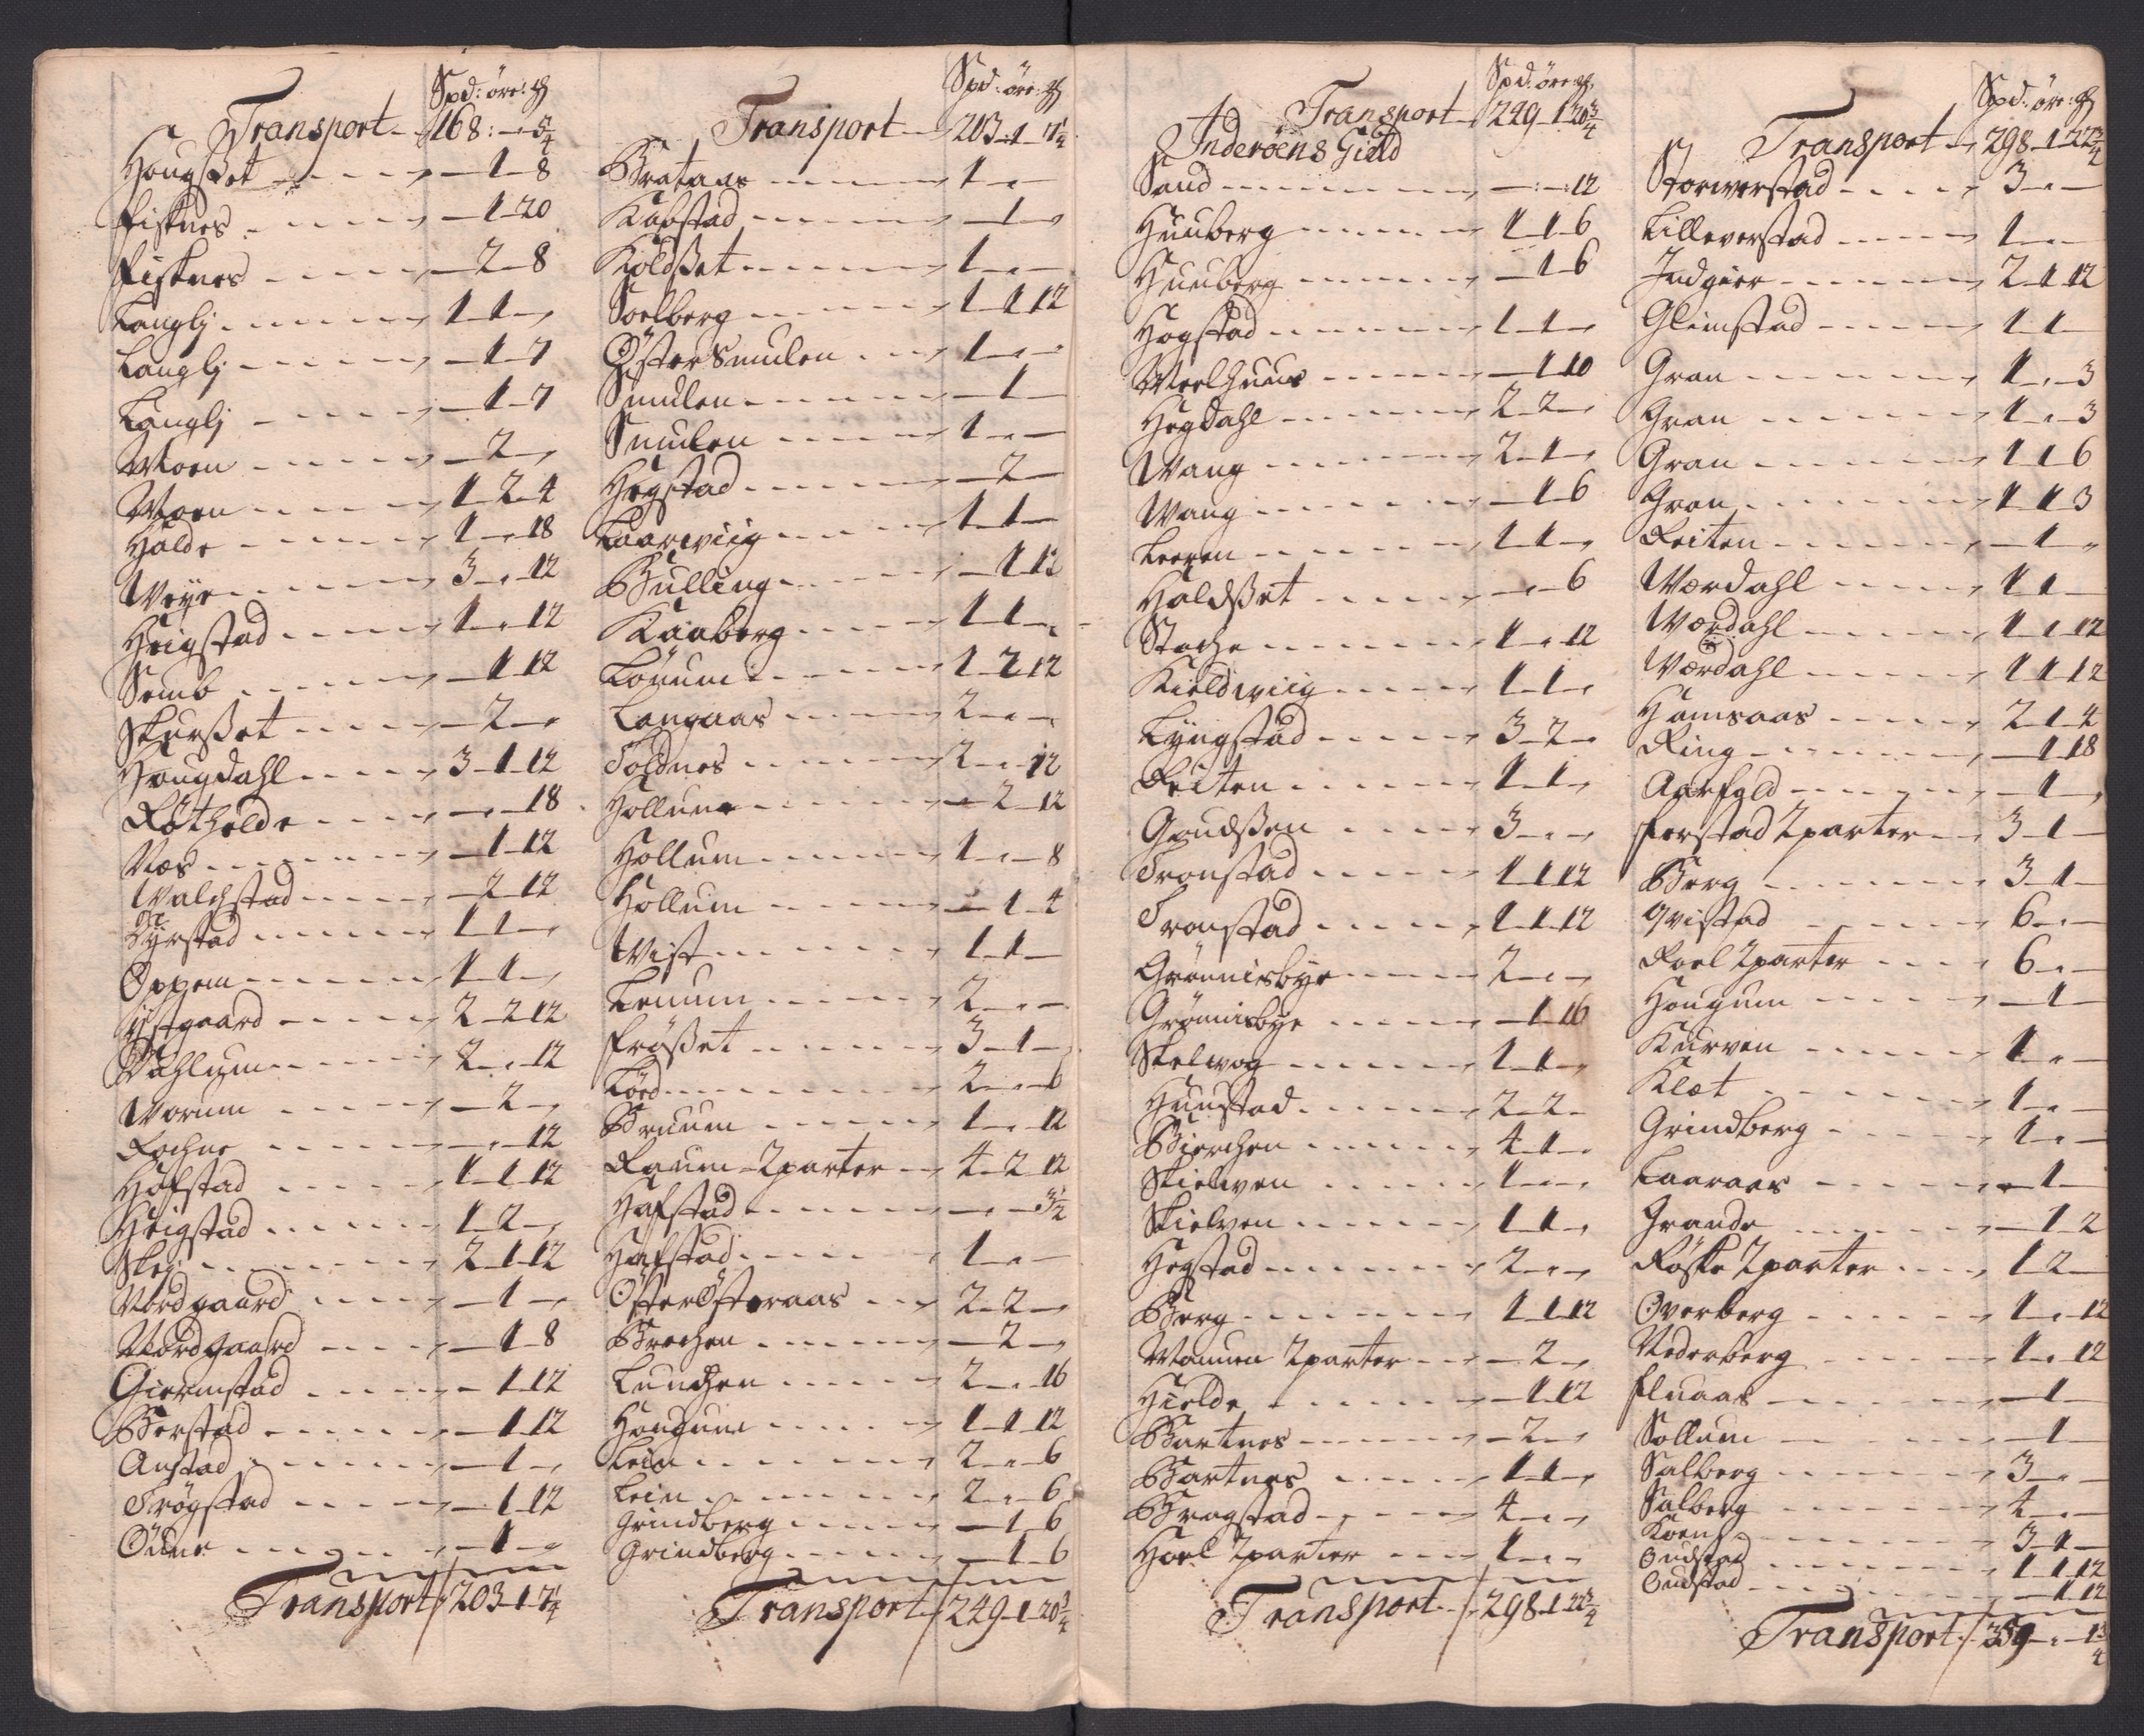 Spd: öre: ₰
Transport 168: – 5/4
Hougßet – 1 – 8
Fisknes – 1 – 20
Fisknes – 2 – 8
Langlj 1 – 1 –
Langlj – 1 – 7
Langlj – 1 – 7
Moen – 2 –
Moen 1 – 2 – 4
Halde 1 – „ – 18
Weye 3 – „ – 12
Heigstad 1 – „ – 12
Semb – 1 12
Skurßet – 2 –
Hougdahl 3 – 1 – 12
Røtholde – „ – 18
Næs – 1 – 12
Walchstad – 2 – 12
Byrstad 1 – 1 –
Oppem 1 – 1 –
Østgaard 2 – 2 12
Dahlum 2 – „ – 12
Worum – 2 –
Rochne – „ – 12
Hofstad 1 – 1 – 12
Heigstad 1 – 2 –
Skej 2 – 1 – 12
Nordgaard – 1 –
Nordgaard – 1 – 8
Giermstad – 1 – 12
Berstad – 1 – 12
Anstad – 1 –
Trøgstad – 1 – 12
Øune – 1 –
Transport 203 – 1 – 7 1/4
Spd: öre: ₰
Transport 203 – 1 – 7 1/4
Brataas 1 – „ –
Kabstad – 1 –
Koldßet 1 – „ –
Soelberg 1 – 1 12
Øster Smulen 1 – „ –
Smulen – 1 –
Smulen 1 – „ –
Hegstad – 2 –
Laarwiig 1 – 1 –
Bulling – 1 12
Kaaberg 1 – 1 –
Lønum 1 – 2 12
Langaas 2 – „ –
Toldnes 2 – „ – 12
Hollum – 2 – 12
Hollum 1 – „ – 8
Hollum – 1 – 4
Wist 1 – 1 –
Lenum 2 – „ –
Frøßet 3 – 1 –
Løed 2 – „ – 6
Bruum 1 – „ 12
Raum 2 parter 4 – 2 12
Hafstad – „ – 3 1/2
Hafstad 1 – „ –
Øster Østeraas 2 – 2 –
Brechen – 2 –
Lundhen 2 – „ – 16
Hougum 1 – 1 – 12
Lein 2 – „ – 6
Lein 2 – „ – 6
Grindberg – 1 – 6
Grindberg – 1 – 6
Transport 249 – 1 – 20 3/4
Spd: öre: ₰
Transport 249 – 1 20 3/4
Inderöens Gield
Sand – „ – 12
Huuberg 1 – 1 – 6
Huuberg – 1 – 6
Hogstad 1 – 1 –
Melhuus – 1 10
Hegdahl 2 – 2 –
Wang 2 – 1 –
Wang – 1 6
Leeren 1 – 1 –
Haldßet – „ – 6
Stache 1 – „ – 12
Kieldwiig 1 – 1 –
Lyngstad 3 – 2 –
Reiten 1 – 1 –
Gaudßen 3 – „ –
Tronstad 1 – 1 12
Tronstad 1 – 1 – 12
Grønnisbye 2 – „ –
Grønnisbye – 1 – 16
Skelwog 1 – 1 –
Huustad 2 – 2 –
Bierchen 4 – 1 –
Skielwen 1 – „ –
Skielven 1 – 1 –
Hegstad 2 – „ –
Berg 1 – 1 – 12
Wannen 2 parter – 2 –
Hielde – 1 12
Bartnes – 2 –
Bartnes 1 – 1 –
Bragstad 4 – „ –
Hoel 2 parter 1 – „ –
Transport 298 – 1 22 3/4
Spd: öre: ₰
Transport 298 – 1 22 3/4
Storwerstad 3 – „ –
Lilleverstad 1 – „ –
Indgier 2 – 1 12
Glimstad 1 – 1 –
Gran 1 – „ – 3
Gran 1 – „ 3
Gran 1 – 1 6
Gran 1 – 1 3
Reiten – 1 –
Wærdahl 1 – 1 –
Wærdahl 1 – „ 12
Værdahl 1 – 1 12
Hamsaas 2 – 1 – 4
Ring – 1 18
Aarfald – 1 –
Forstad 2 parter 3 – 1 –
Berg 3 – 1 –
Qvistad 6 – „ –
Roel 2 parter 6 – „ –
Hougum – 1 –
Kurven 1 – „ –
Klæt 1 – „ –
Grindberg 1 – „ –
Laaraas – 1 –
Grande – 1 2
Røske 2 parter 1 – 2 –
Overberg 1 – „ – 12
Nederberg 1 – „ 12
Fluaas – 1 –
Sollum – 1 –
Salberg 3 – „ –
Salberg 4 – „ –
Koen 3 – 1 –
Oudstad 1 – 1 12
Oudstad – 1 12
Transport 359 – „ – 1 3/4